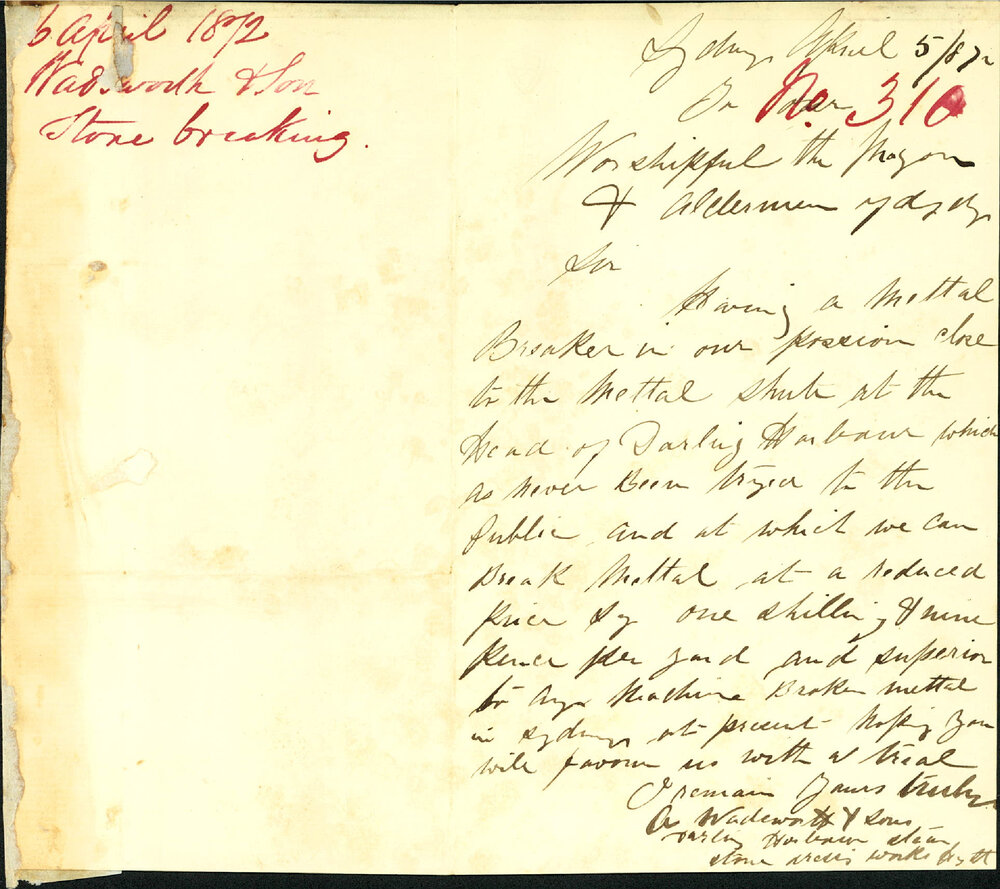 6 April 1872
Wadsworth & Son
Stone breaking.
Sydney April 5/872
No. 310
To
Worshipful the Mayor
& Aldermen of Sydney
Sir
Having a Mettal
Breaker in our possion close
to the Mettal Shute at the
Head of Darling Harbour which
as never Been tryed to the
Public and at which we can
Break Mettal at a reduced
price Sy one shilling & nine
pence per yard and superior
to any Machine Broken mettal
in Sydney at present hoping you
will favour us with a trial
I remain Yours truly
A Wadsworth & Sons
Darling Harbour steam
stone works